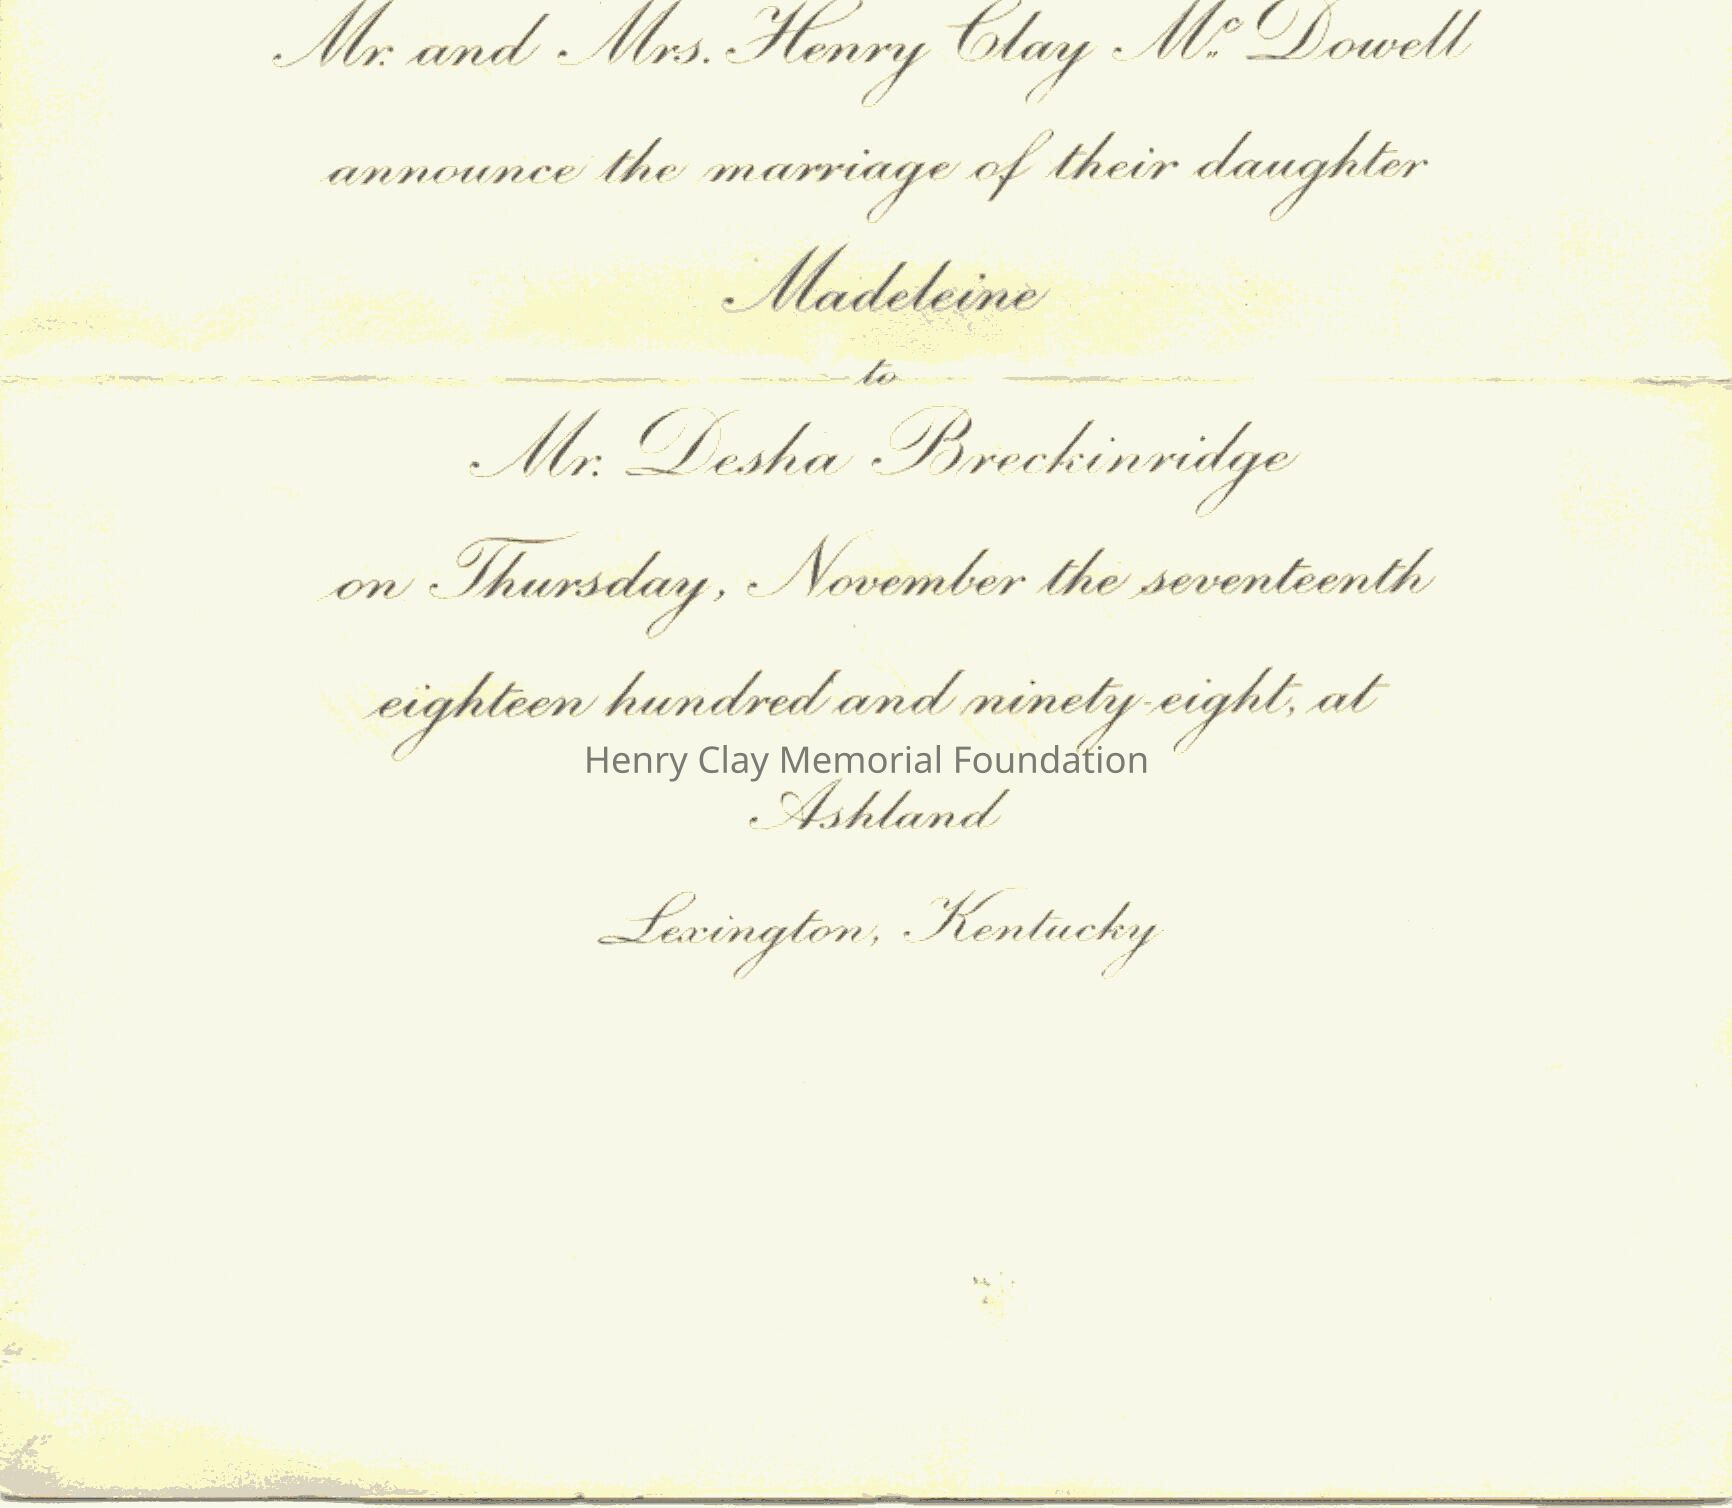 Mr. and Mrs. Henry Clay Mc. Dowell
announce the marriage of their daughter
Madeleine
to
Mr. Desha Breckinridge
on Thursday, November the seventeenth
eighteen hundred and ninety-eight, at
Henry Clay Memorial Foundation
Ashland
Lexington, Kentucky